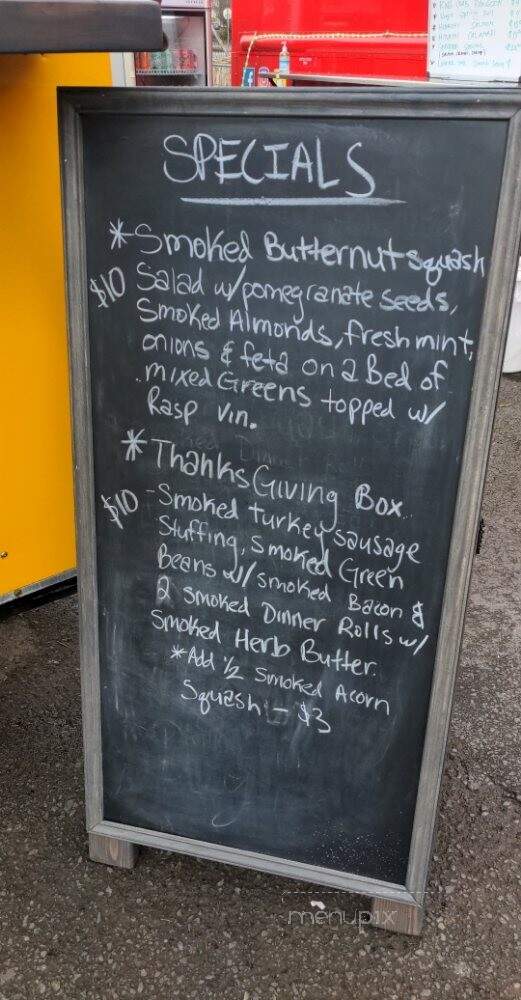 SPECIALS
*Smoked Butternut squash
$10 Salad w/pomegranate seeds,
Smoked Almonds, fresh mint,
onions & feta on a Bed of
mixed Greens topped w/
Rasp Vin.
*ThanksGiving Box
$10 -Smoked turkey sausage
Stuffing, Smoked Green
Beans w/smoked Bacon &
2 smoked Dinner Rolls w/
Smoked Herb Butter.
*Add 1/2 Smoked Acorn
Squash - $3
menupix